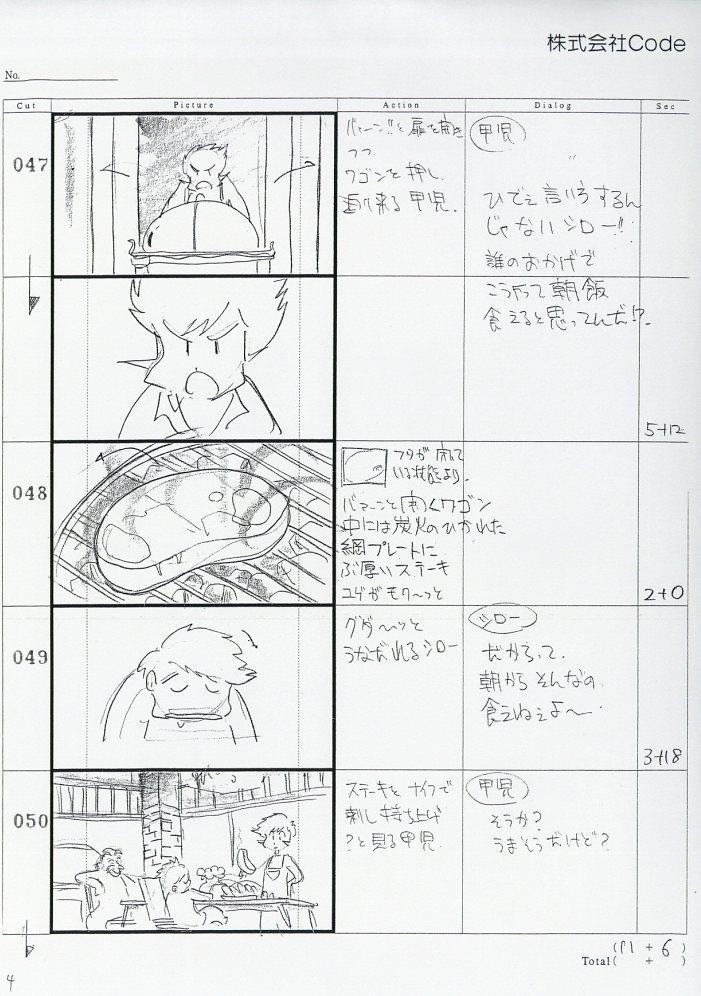 株式会社Code
No.
Cut Picture Action Dialog Sec
047
バァーン!!と扉を開き
つつ
ワゴンを押し
迫り来る甲児.
甲児
ひでぇ言いようするん
じゃないシロー!!
誰のおかげで
こうやって朝飯
食えると思ってんだ!?
5+12
048
フタが閉じて
いる状態より.
バァーンと開くワゴン
中には炭火のひかれた
網プレートに
ぶ厚いステーキ
ユゲがモワ〜っと
2+0
049
グダ〜ッと
うなだれるシロー
シロー
だからって.
朝からそんなの
食えねぇよ〜
3+18
050
ステーキをナイフで
刺し持ち上げ
?と見る甲児
甲児
そうか?
うまそうだけど?
(11 + 6)
Total( + )
4